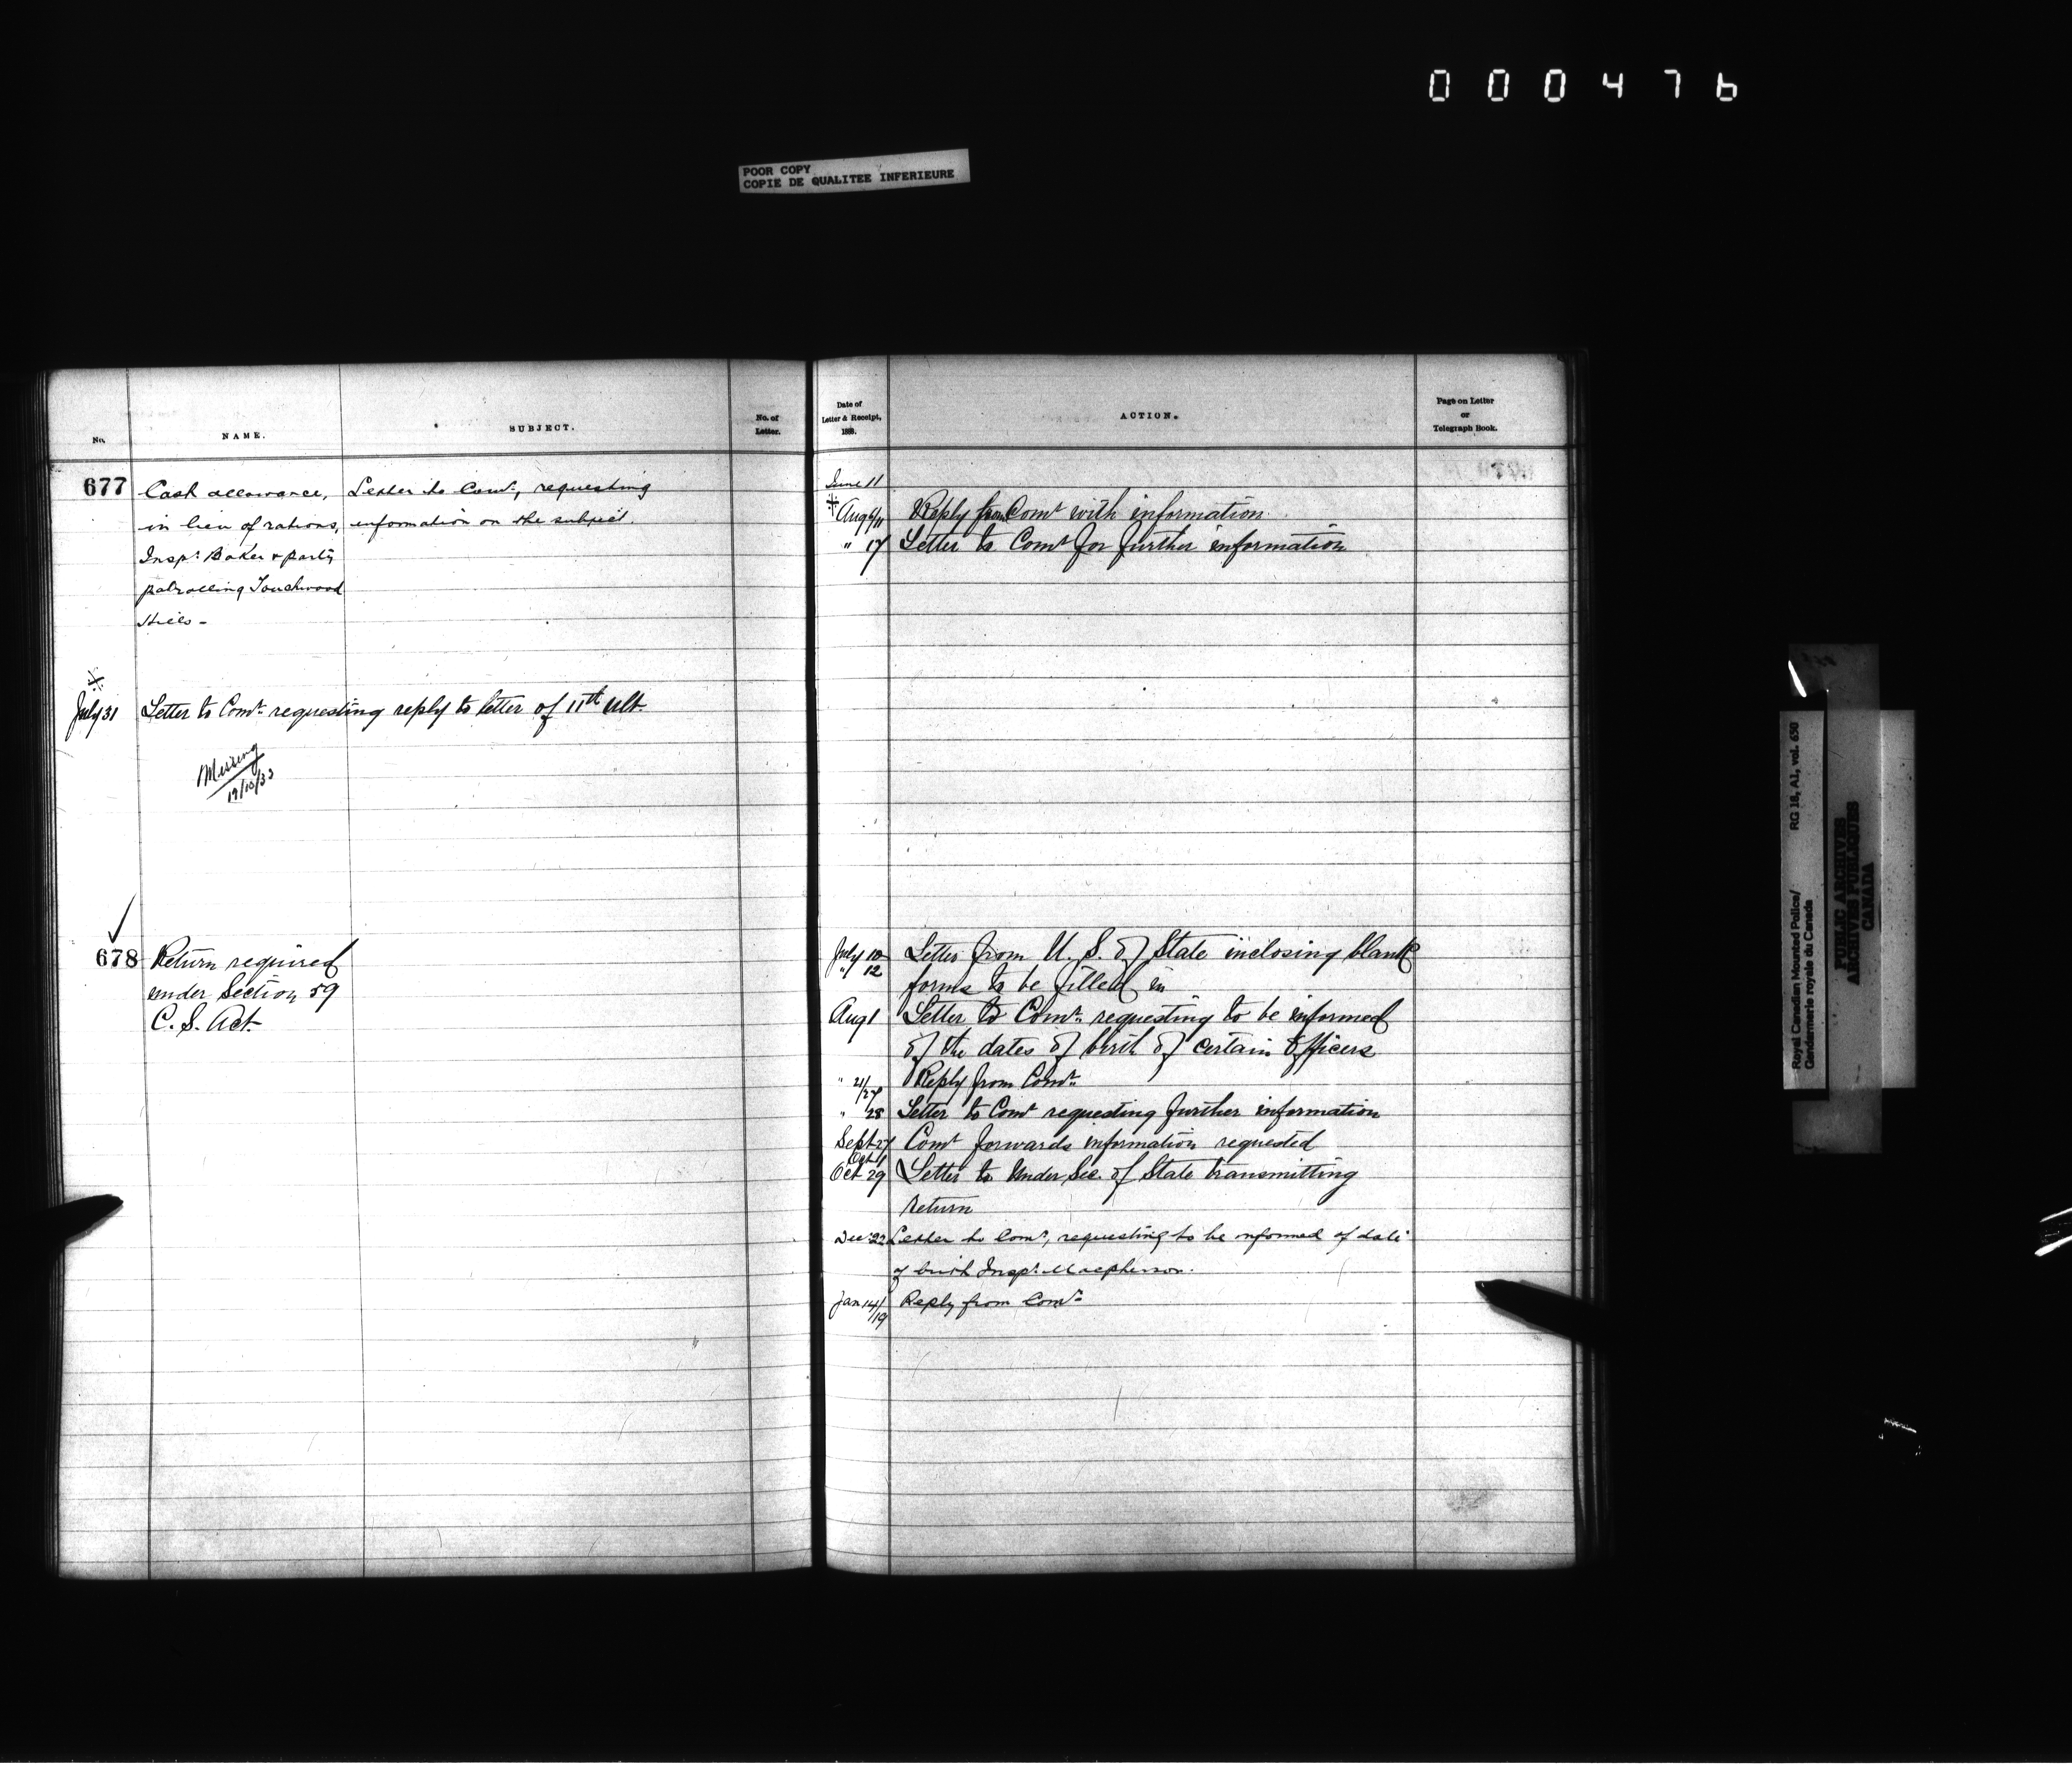 000476
POOR COPY
COPIE DE QUALITEE INFERIEURE
No.
NAME.
SUBJECT.
No. of
Letter.
677
Cash allowance,
in lieu of rations,
Inspr. Baker & party
patrolling Touchwood
Hills -
Letter to Comr., requesting
information on the subject.
July 31
Letter to Comr. requesting reply to letter of 11th ult.
Missing
19/10/33
678
Return required
under Section 59
C. S. Act.
Date of
Letter & Receipt,
188 .
ACTION.
Page on Letter
or
Telegraph Book.
June 11
Aug 6/11 Reply from Comr with information
" 17 Letter to Comr for further information
July 10 Letter from U. S. of State inclosing blank
"/ 12 forms to be filled in
Aug 1 Letter to Comr. requesting to be informed
of the dates of birth of certain Officers
" 21/27 Reply from Comr.
" 28 Letter to Comr requesting further information
Sept 27 Comr forwards information requested
Oct 1
Oct 29 Letter to Under Sec. of State transmitting
return
Dec 22 Letter to Comr, requesting to be informed of date
of birth Inspr. Macpherson.
Jan 14/19 Reply from Comr.
Royal Canadian Mounted Police/
Gendarmerie royale du Canada
RG 18, A1, vol. 650
PUBLIC ARCHIVES
ARCHIVES PUBLIQUES
CANADA